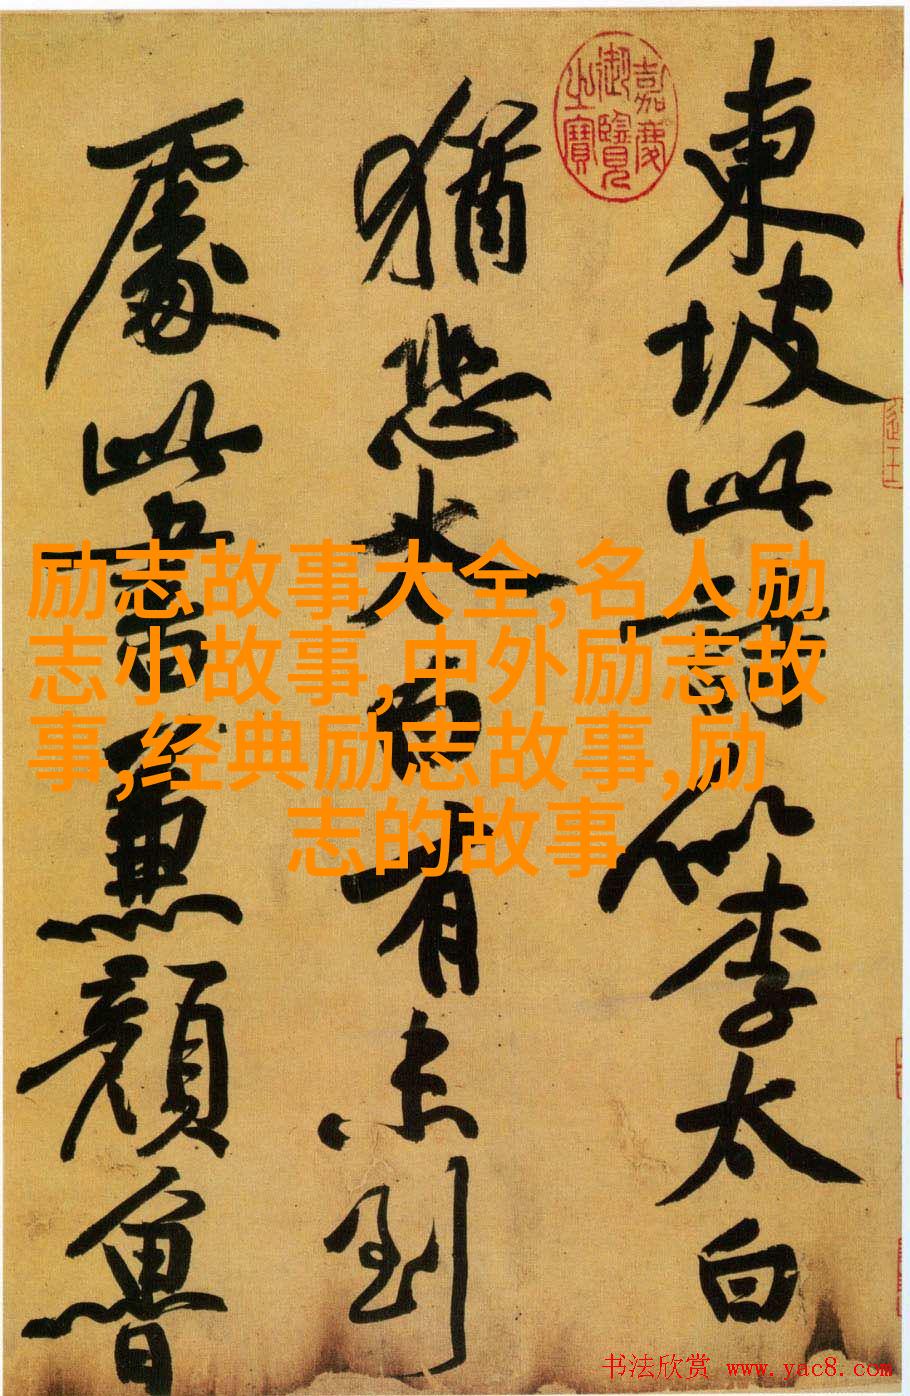 東坡此詩似李太白
猶恐太白有未到
處此書兼顔魯
嘉慶
御覽
之寶
励志故事大全,名人励
志小故事,中外励志故
事,经典励志故事,励
志的故事
书法欣赏 www.yac8.com